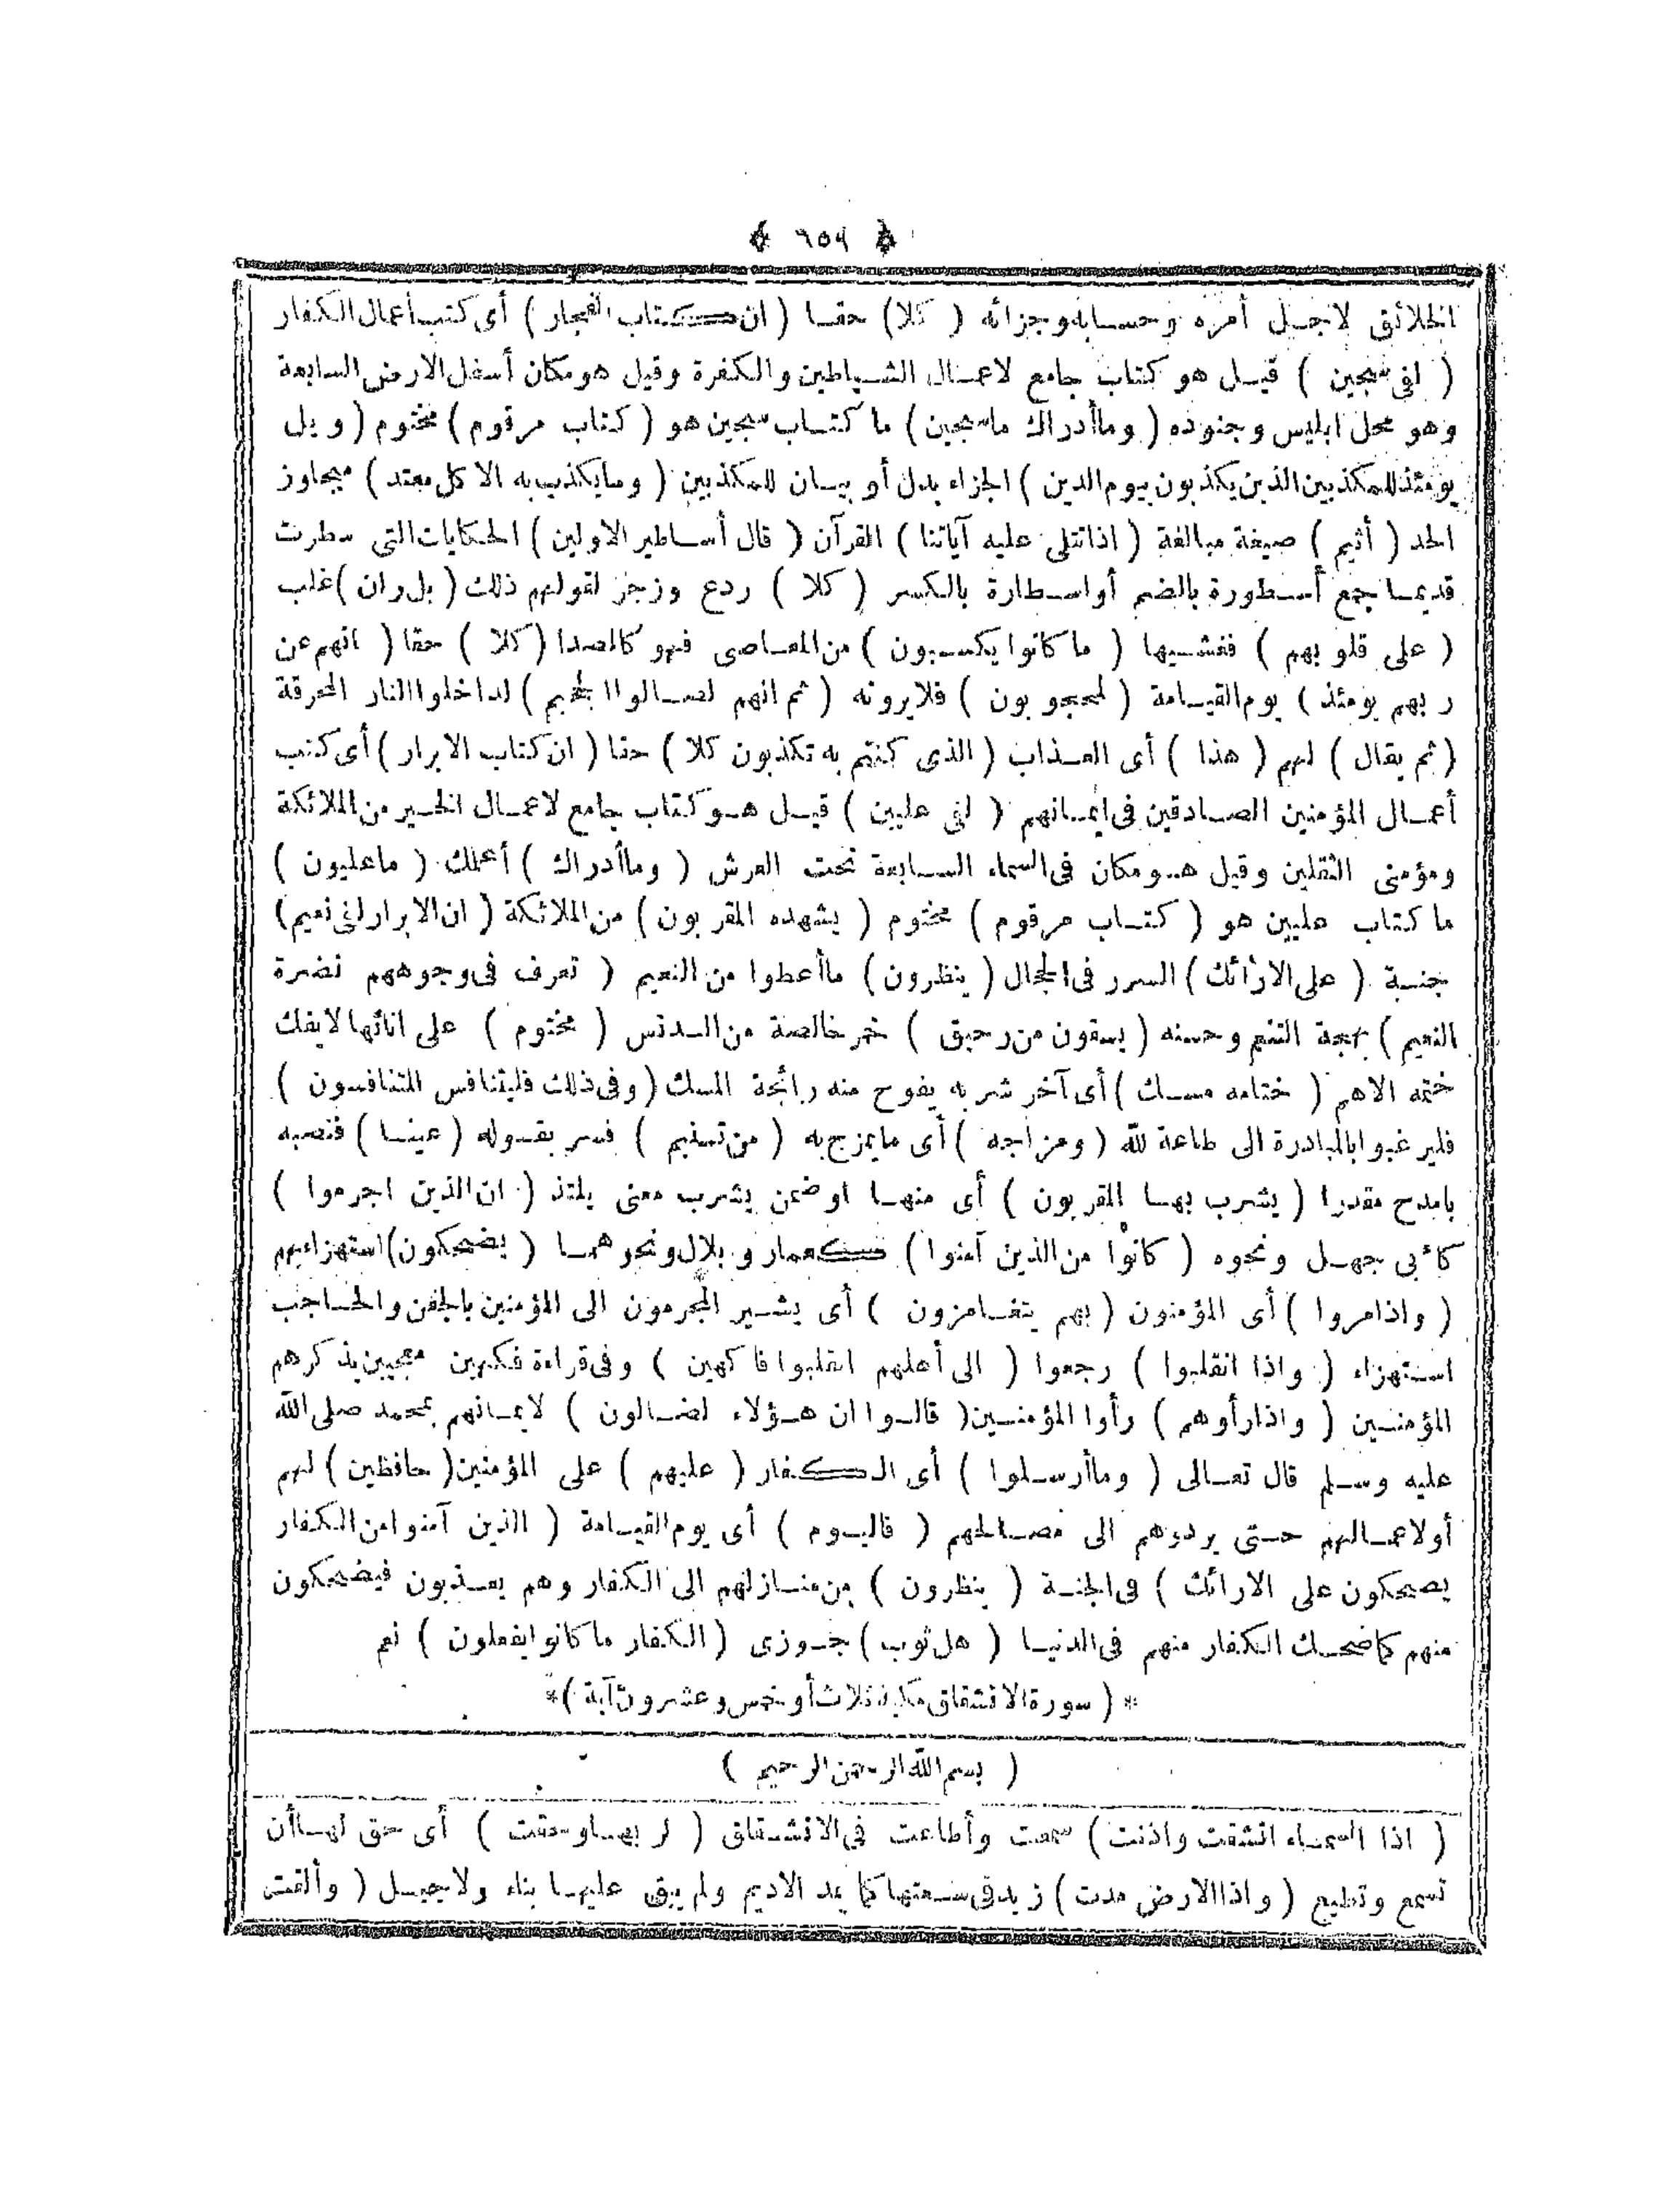 ﴿ ٦٥٩ ﴾
الخلائق لاجل أمره وحسابه وجزائه ( كلا ) حقا ( ان كتاب الفجار ) أى كتب أعمال الكفار
( لفى سجين ) قيل هو كتاب جامع لاعمال الشياطين والكفرة وقيل هو مكان أسفل الارض السابعة
وهو محل ابليس وجنوده ( وما أدراك ما سجين ) ما كتاب سجين هو ( كتاب مرقوم ) مختوم ( ويل
يومئذ للمكذبين الذين يكذبون بيوم الدين ) الجزاء بدل أو بيان للمكذبين ( وما يكذب به الا كل معتد ) متجاوز
الحد ( أثيم ) صيغة مبالغة ( اذا تتلى عليه آياتنا ) القرآن ( قال أساطير الاولين ) الحكايات التى سطرت
قديما جمع أسطورة بالضم أو اسطارة بالكسر ( كلا ) ردع وزجر لقولهم ذلك ( بل ران ) غلب
( على قلوبهم ) فغشيها ( ما كانوا يكسبون ) من المعاصى فهو كالصدا ( كلا ) حقا ( انهم عن
ربهم يومئذ ) يوم القيامة ( لمحجوبون ) فلا يرونه ( ثم انهم لصالوا الجحيم ) لداخلوا النار المحرقة
( ثم يقال ) لهم ( هذا ) أى العذاب ( الذى كنتم به تكذبون كلا ) حقا ( ان كتاب الابرار ) أى كتب
أعمال المؤمنين الصادقين فى ايمانهم ( لفى عليين ) قيل هو كتاب جامع لاعمال الخير من الملائكة
ومؤمنى الثقلين وقيل هو مكان فى السماء السابعة تحت العرش ( وما أدراك ) أعلمك ( ما عليون )
ما كتاب عليين هو ( كتاب مرقوم ) مختوم ( يشهده المقربون ) من الملائكة ( ان الابرار لفى نعيم )
جنة ( على الارائك ) السرر فى الحجال ( ينظرون ) ما أعطوا من النعيم ( تعرف فى وجوههم نضرة
النعيم ) بهجة التنعم وحسنه ( يسقون من رحيق ) خمر خالصة من الدنس ( مختوم ) على انائها لا يفك
ختمه الا هم ( ختامه مسك ) أى آخر شربه يفوح منه رائحة المسك ( وفى ذلك فليتنافس المتنافسون )
فليرغبوا بالمبادرة الى طاعة لله ( ومزاجه ) أى ما يمزج به ( من تسنيم ) فسر بقوله ( عينا ) فنصبه
بامدح مقدرا ( يشرب بها المقربون ) أى منها او ضمن يشرب معنى يلتذ ( ان الذين اجرموا )
كأبى جهل ونحوه ( كانوا من الذين آمنوا ) كعمار وبلال ونحوهما ( يضحكون ) استهزاء بهم
( واذا مروا ) أى المؤمنون ( بهم يتغامزون ) أى يشير المجرمون الى المؤمنين بالجفن والحاجب
استهزاء ( واذا انقلبوا ) رجعوا ( الى أهلهم انقلبوا فاكهين ) وفى قراءة فكهين معجبين بذكرهم
المؤمنين ( واذا رأوهم ) رأوا المؤمنين ( قالوا ان هؤلاء لضالون ) لايمانهم بمحمد صلى الله
عليه وسلم قال تعالى ( وما أرسلوا ) أى الكفار ( عليهم ) على المؤمنين ( حافظين ) لهم
أو لاعمالهم حتى يردوهم الى مصالحهم ( فاليوم ) أى يوم القيامة ( الذين آمنوا من الكفار
يضحكون على الارائك ) فى الجنة ( ينظرون ) من منازلهم الى الكفار وهم يعذبون فيضحكون
منهم كما ضحك الكفار منهم فى الدنيا ( هل ثوب ) جوزى ( الكفار ما كانوا يفعلون ) نعم
* ( سورة الانشقاق مكية ثلاث أو خمس وعشرون آية ) *
( بسم الله الرحمن الرحيم )
( اذا السماء انشقت واذنت ) سمعت وأطاعت فى الانشقاق ( لربها وحقت ) أى حق لها أن
تسمع وتطيع ( واذا الارض مدت ) زيد فى سعتها كما يمد الاديم ولم يبق عليها بناء ولا جبل ( وألقت